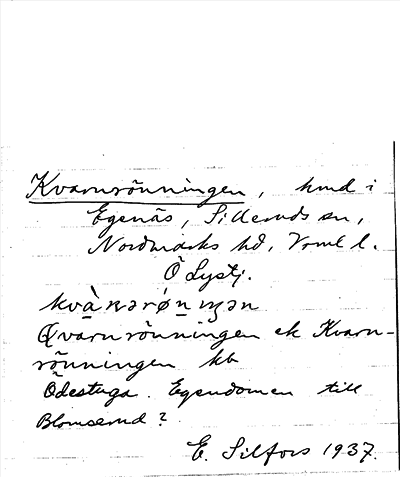 Kvarnrönningen, hmd i
Egenäs, Silleruds sn,
Nordmarks hd, Vrml l.
Ö Lystj.
kvà̱ʀnərǿṉɪŋən
Qvarnrönningen ek Kvarn-
rönningen kb
Ödestuga. Egendomen till
Blomserud?
E. Silfors 1937.